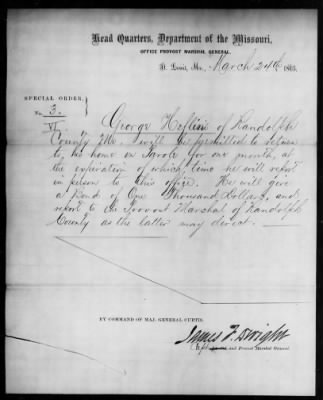 Head Quarters, Department of the Missouri,
OFFICE PROVOST MARSHAL GENERAL,
St. Louis, Mo., March 24th 1863.
SPECIAL ORDER,
No. 3.
VI.
George Heflin of Randolph
County Mo. will be permitted to return
to his home on Parole for one month, at
the expiration of which time he will report
in person to this office. He will give
a Bond of One Thousand Dollars, and
report to the Provost Marshal of Randolph
County as the latter may direct.
BY COMMAND OF MAJ. GENERAL CURTIS.
James F. Dwight
Capt. and Provost Marshal General.